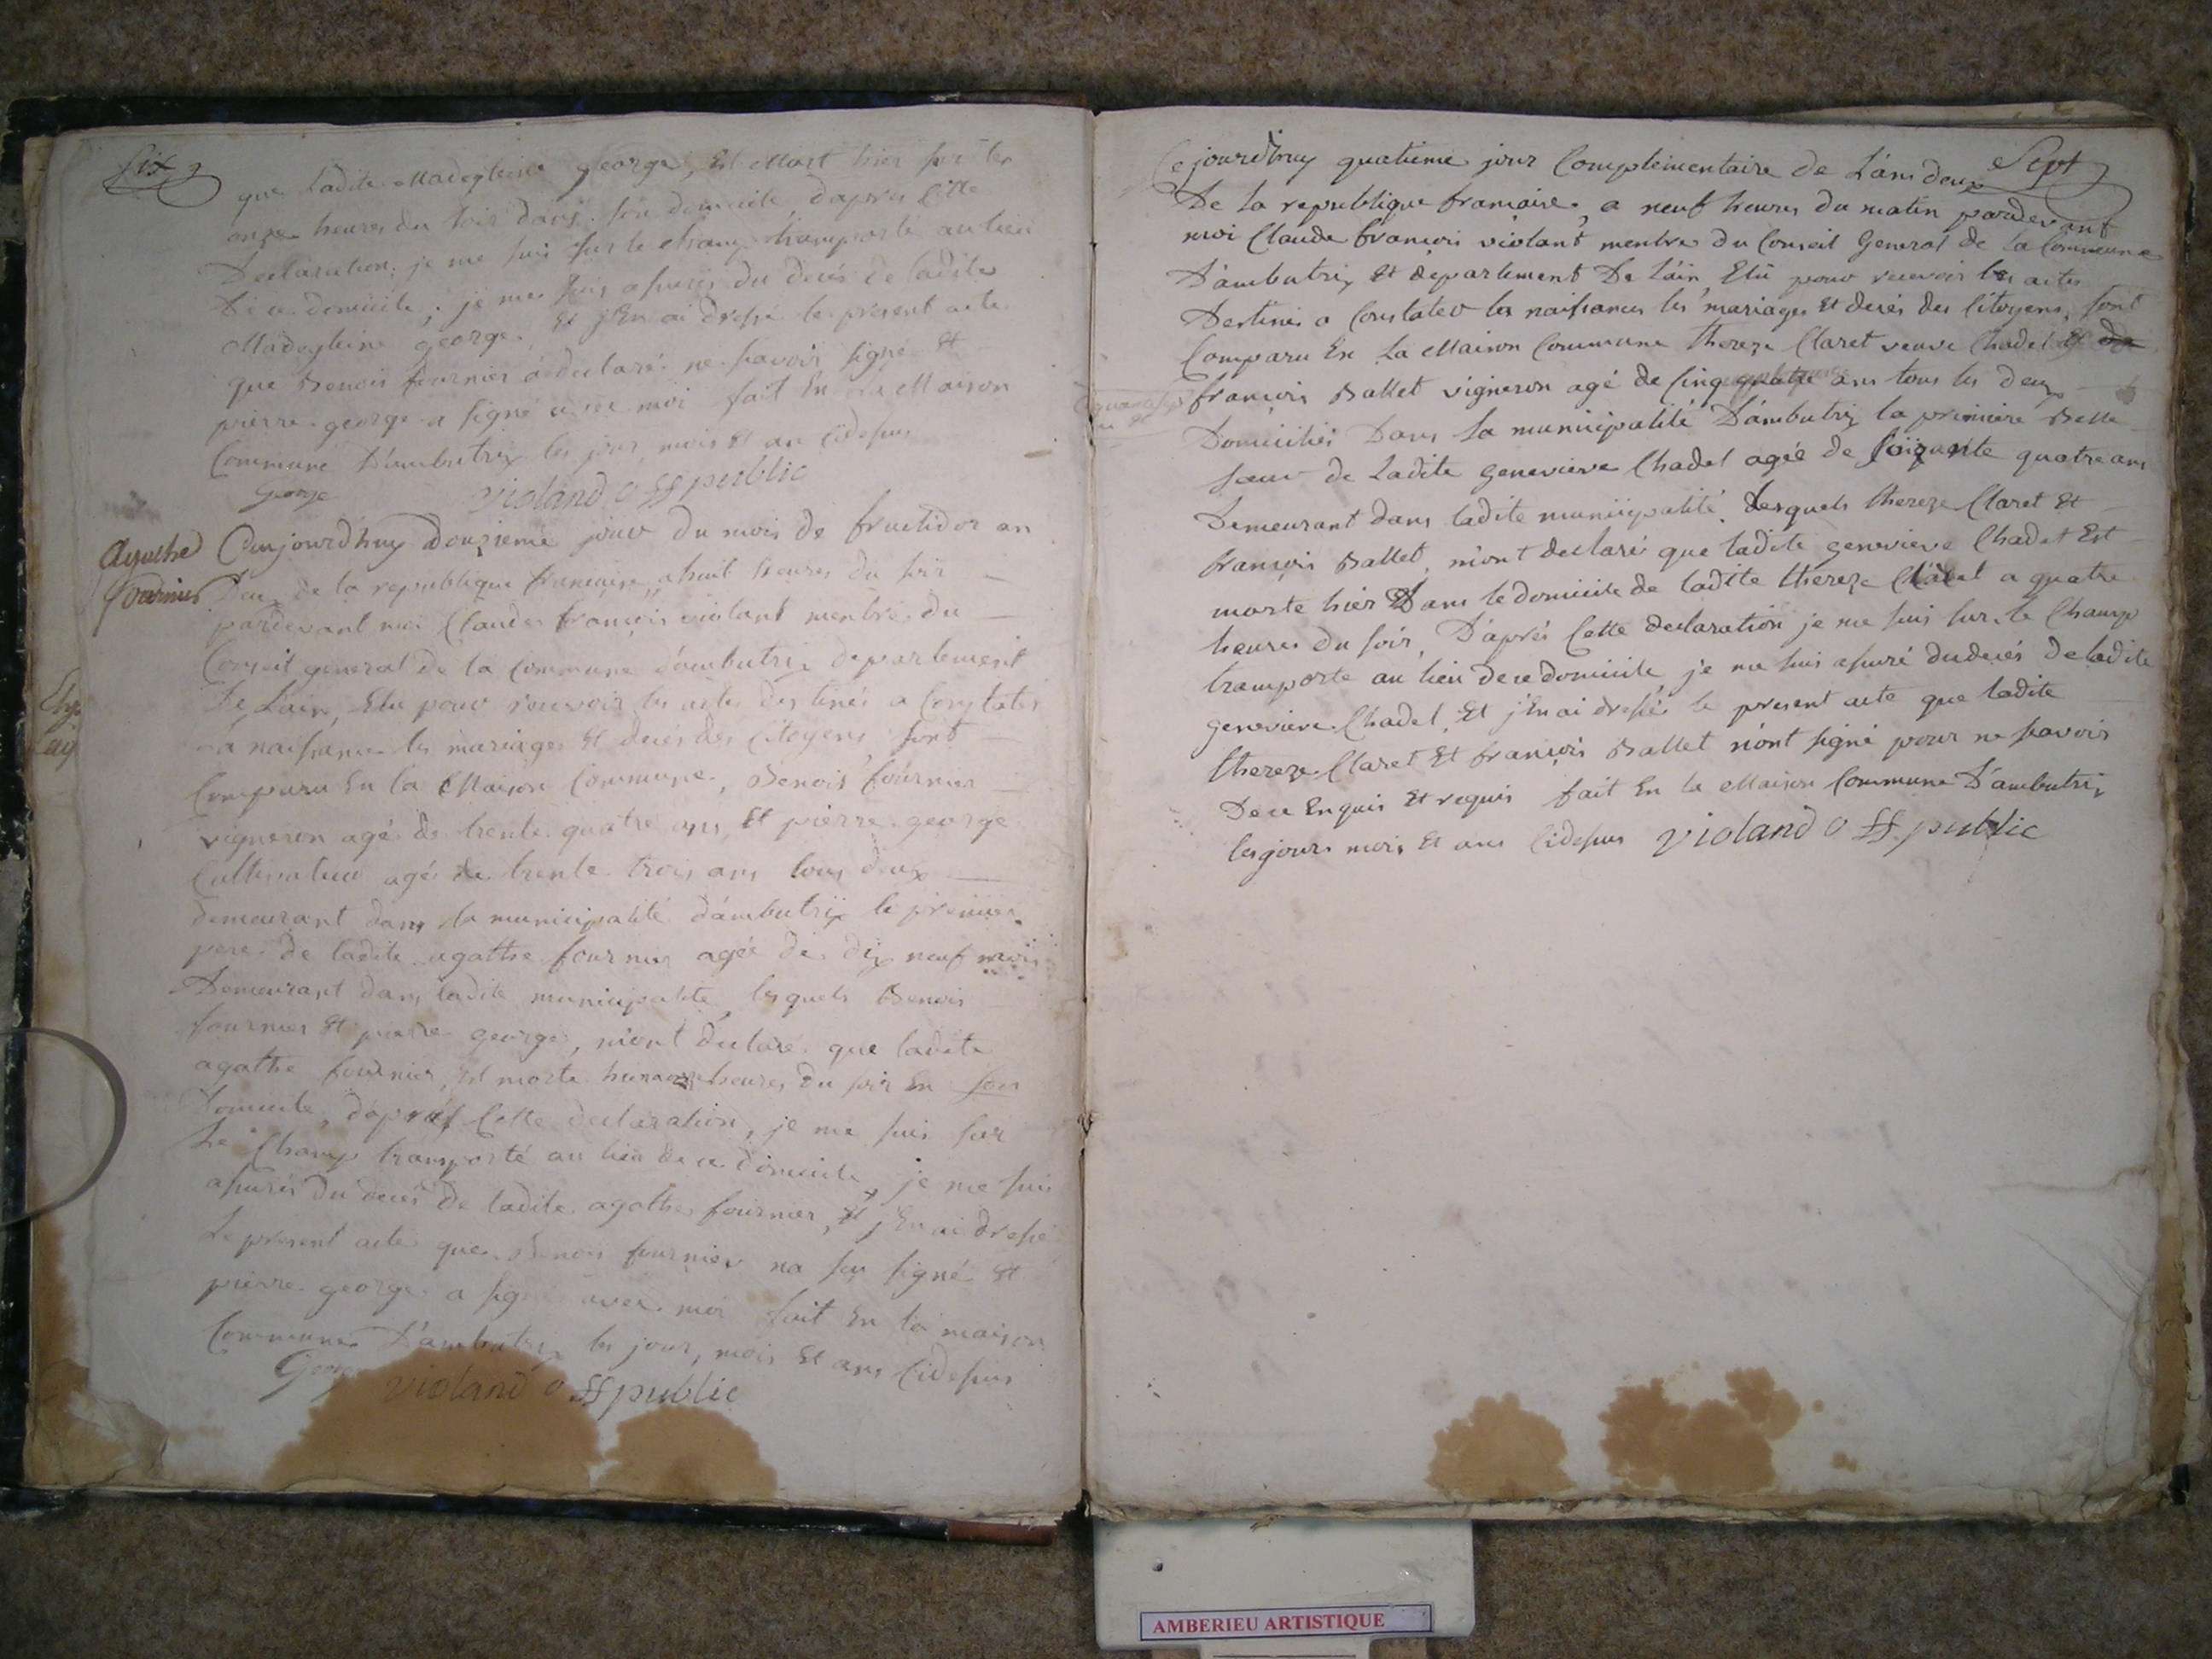 six
que Ladite Madegleine george, Est Mort hier sur les
onze heures du soir dans son domicile, d'apres Cette
Declaration, je me suis sur le champ transporté au lieu
De ce domicile, je me suis assurés du decés de ladite
Madegleine george, Et j'En ai dressé le present acte
que Benois fournier a déclaré ne savoir signé Et
pierre george a signé avec moi fait En La Maison
Commune D'ambutrix les jour, mois Et an cidessus
George violand off public
Agathe
fournier
Aujourdhuy Douzieme jour du mois de fructidor an
Deux de la republique francaise, a huit heures du soir
pardevant moi Claude françois violant membre du
Conseil general de la Commune d'ambutrix departement
De Lain, Elu pour recevoir les actes destinés a Constater
la naissance les mariages Et decés des Citoyens, sont
Comparu En la Maison Commune, Benois fournier
vigneron agé de trente quatre ans, Et pierre george
Cultivateur agé de trente trois ans tous deux
demeurant dans la municipalité d'ambutrix le premier
pere de ladite agathe fournier agée de dix neuf mois
Demeurant dans ladite municipalite, lesquels Benois
fournier Et pierre george, m'ont declaré que ladite
agathe fournier, Est morte heures du soir En son
Domicile, d'aprés Cette declaration, je me suis sur
Le Champ transporté au lieu de ce domicile, je me suis
assurés du decés de ladite agathe fournier, Et j'En ai dressé
Le present acte que Benois fournier na su signé Et
pierre george a signé avec moi fait En la maison
Commune D'ambutrix les jour, mois Et ans Cidessus
George violand off public
Sept
Cejourdhuy quatrieme jour Complémentaire de L'ans deux
De la republique francaise, a neuf heures du matin pardevant
moi Claude françois violant membre du Conseil General de la Commune
D'ambutrix Et département De L'ain, Elû pour recevoir les actes
Destinés a Constater les naissances les mariages Et decés des Citoyens, sont
Comparu En La Maison Commune thereze Claret veuve Chadel Et
françois Ballet vigneron agé de Cinq quatre ans tous les deux
Domiciliés Dans La municipalité D'ambutrix la premiere Belle
soeur de Ladite genevieve Chadel agée de soixante quatre ans
Demeurant dans ladite municipalité, Lesquels thereze Claret Et
françois Ballet, m'ont declaré que ladite genevieve Chadel Est
morte hier Dans le domicile de ladite thereze Claret a quatre
heures du soir, D'aprés Cette declaration je me suis sur le Champ
transporté au lieu de ce domicile je me suis assuré du decés de ladite
genevieve Chadel, Et j'En ai dressés le present acte que ladite
thereze Claret Et françois Ballet n'ont signé pour ne savoir
De ce Enquis Et requis fait En la Maison Commune D'ambutrix
les jours mois Et ans Cidessus violand off public
AMBERIEU ARTISTIQUE